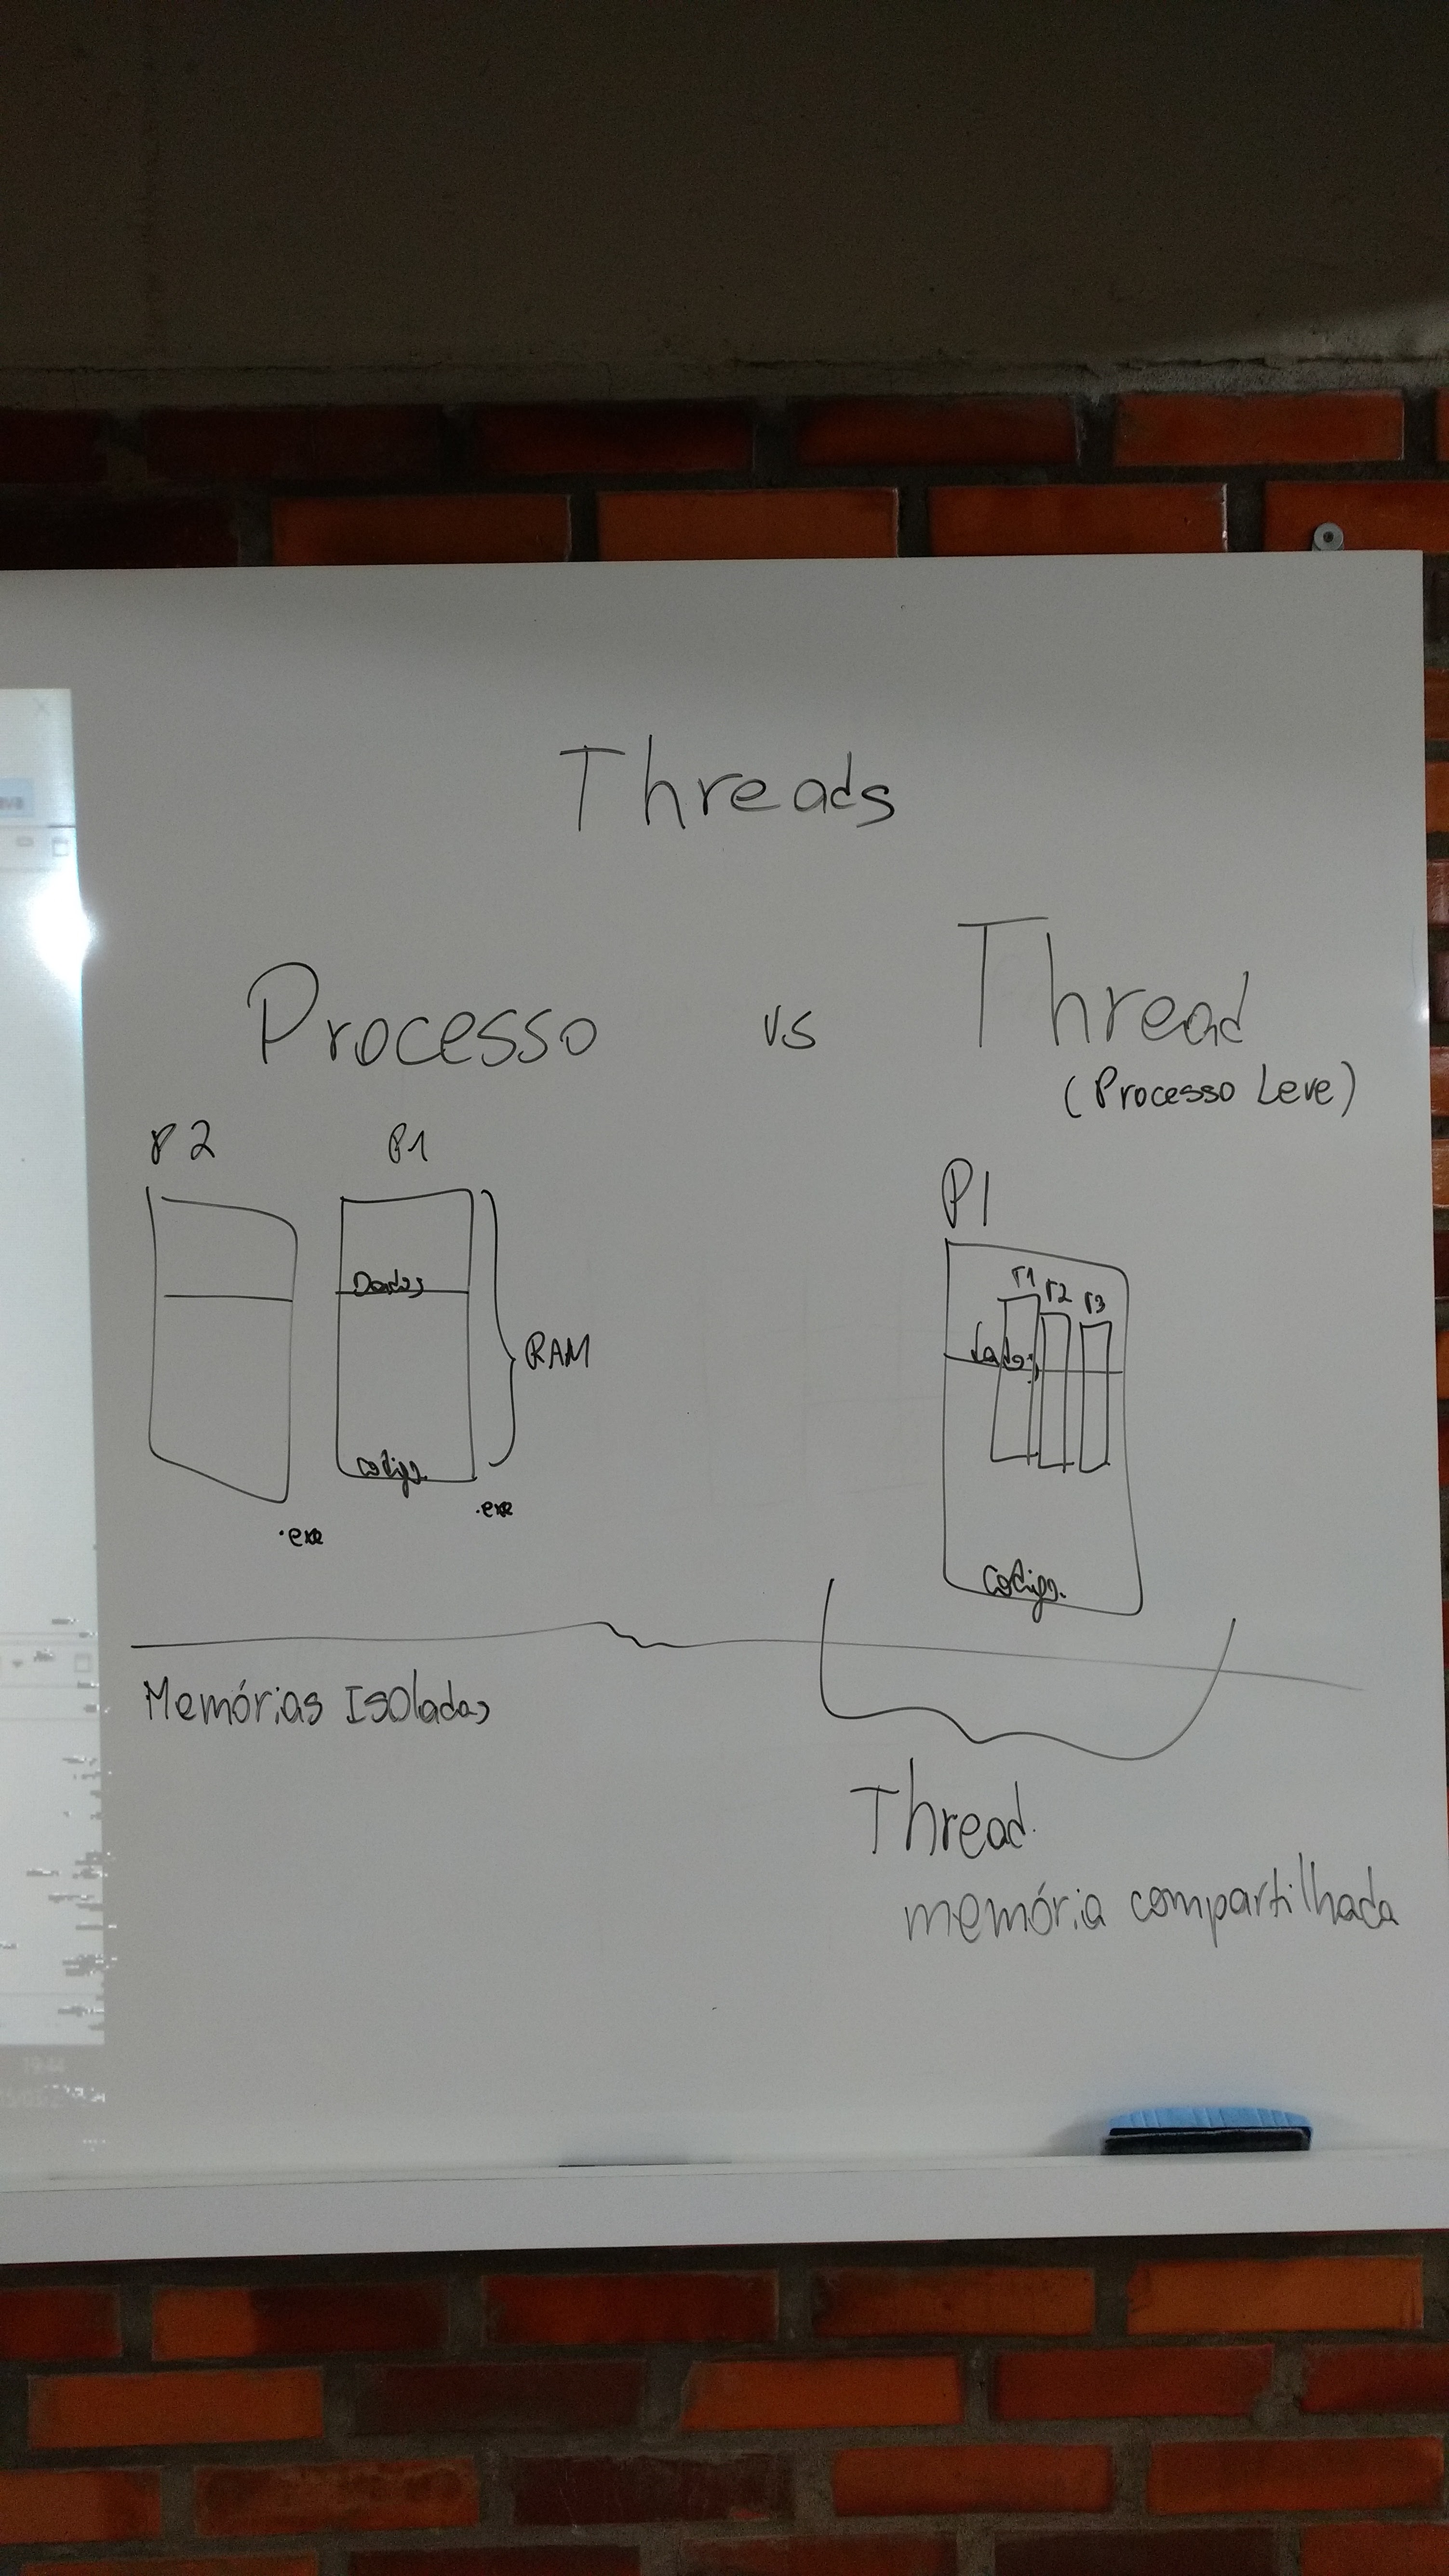 Threads
Processo vs Thread
(Processo Leve)
P2 P1
Dados
RAM
Codigo
.exe
.exe
P1
T1 T2 T3
dados
Codigo
Memórias Isoladas
Thread
memória compartilhada